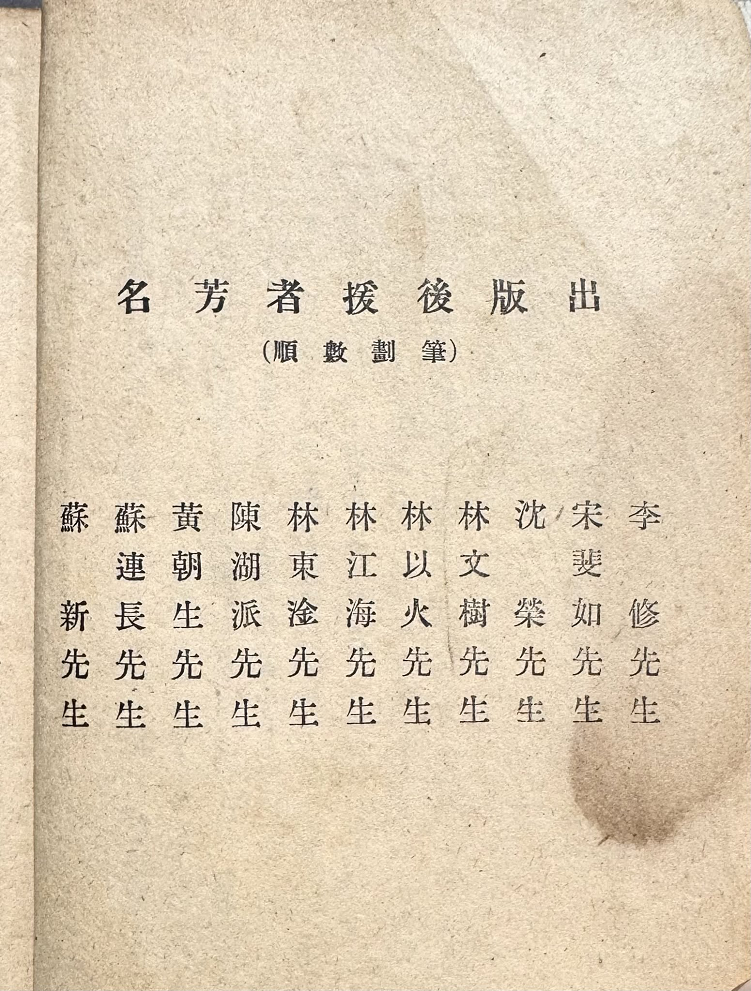 出版後援者芳名
(筆劃數順)
李修先生
宋斐如先生
沈榮先生
林文樹先生
林以火先生
林江海先生
林東淦先生
陳湖派先生
黃朝生先生
蘇連長先生
蘇新先生